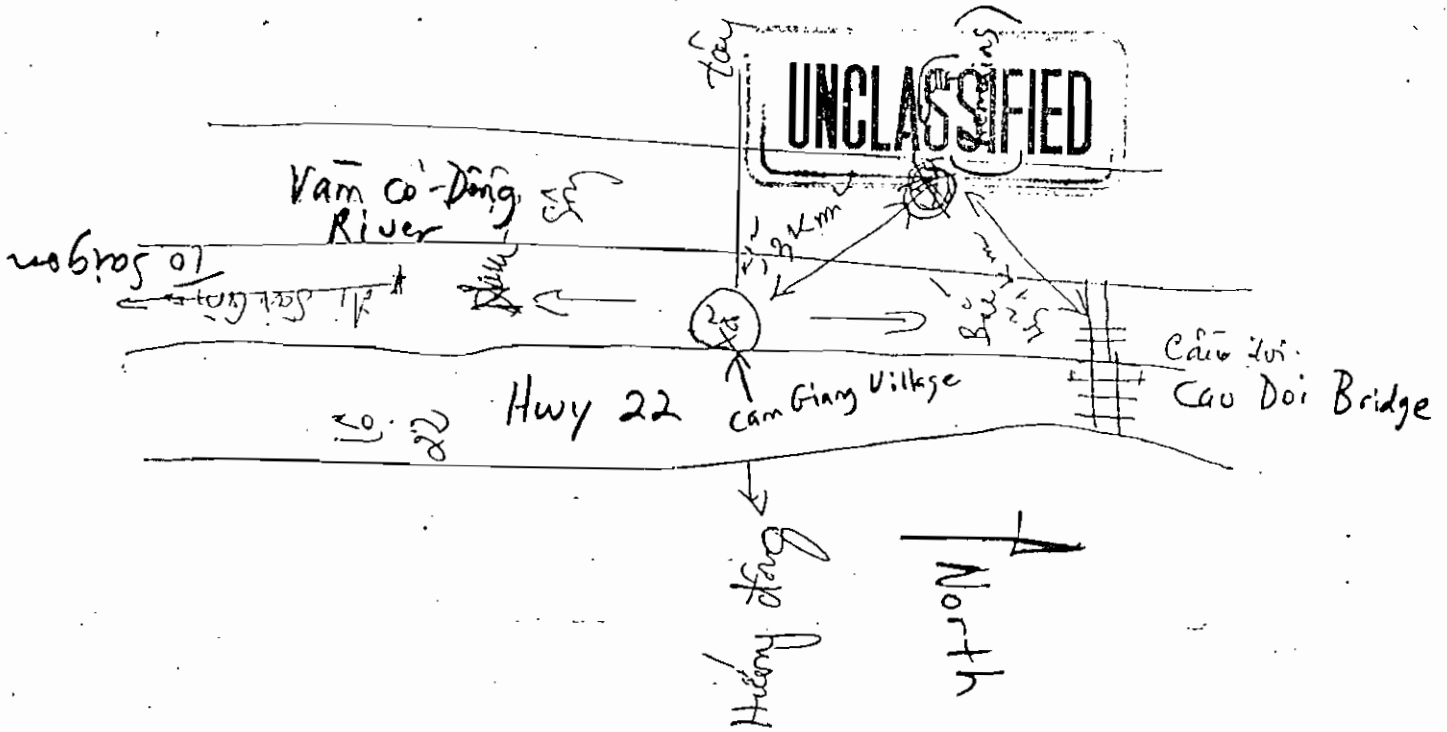 tây
UNCLASSIFIED
(Remains)
Vàm cỏ-Đông
River
3 Km
To Saigon
đi Sài Gòn
Cao Doi Bridge
Hwy 22
Cam Giang Village
Hướng đông
North